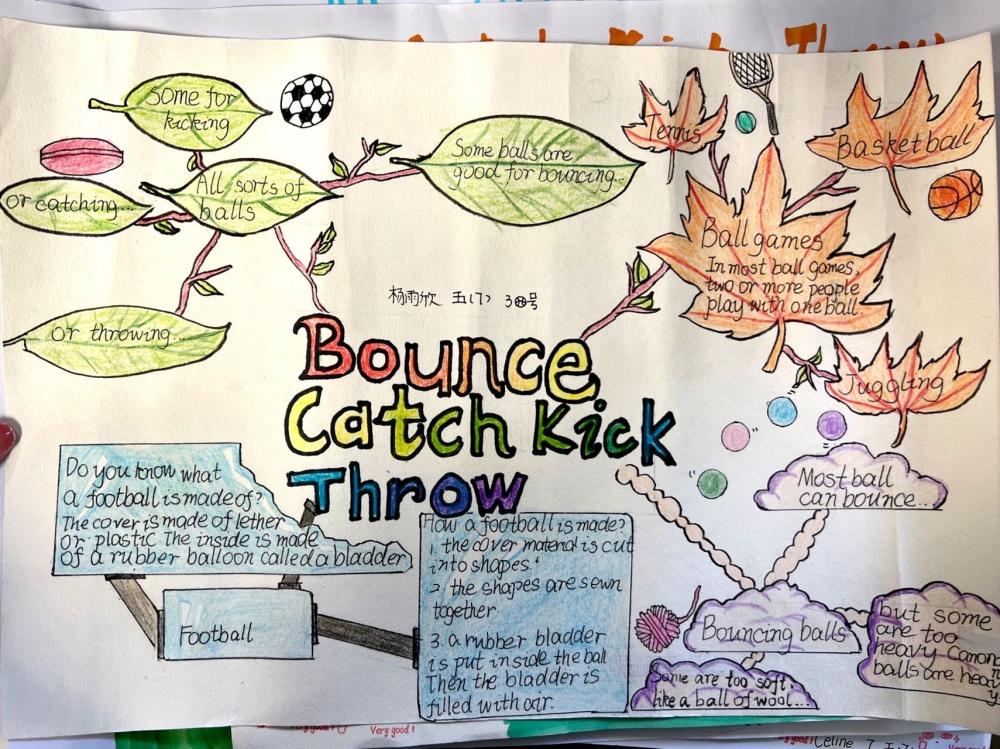 some for
kicking
All sorts of
balls
or catching...
or throwing...
Some balls are
good for bouncing...
Tennis
Basketball
Ball games
In most ball games,
two or more people
play with one ball.
Juggling
杨雨欣 五(7) 3号
Bounce
Catch Kick
Throw
Do you know what
a football is made of?
The cover is made of lether
or plastic The inside is made
of a rubber balloon called a bladder
Football
How a football is made?
1. the cover material is cut
into shapes.
2. the shapes are sewn
together
3. a rubber bladder
is put inside the ball
Then the bladder is
filled with air.
Most ball
can bounce...
Bouncing balls
but some
are too
heavy Canon
balls are heavy
Some are too soft.
like a ball of wool...
Very good!
Celine